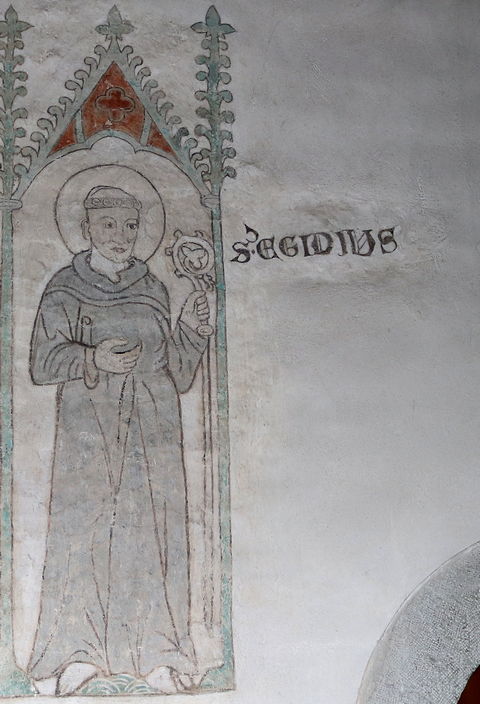 S. EGIDIUS